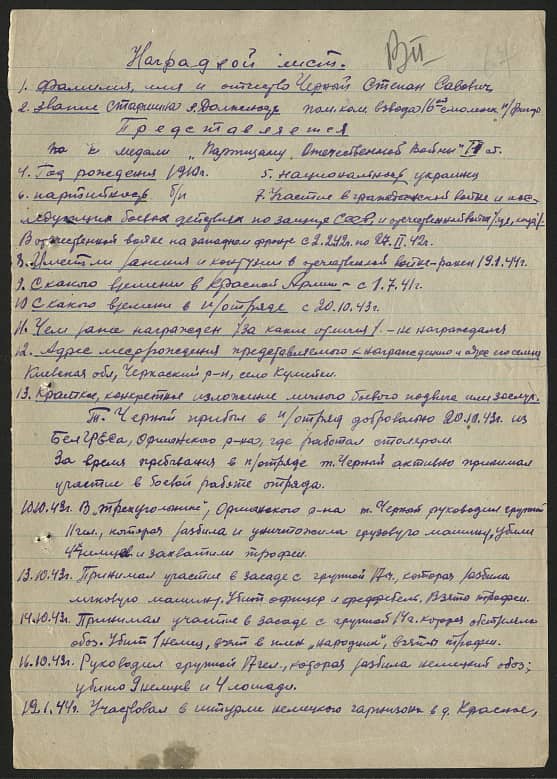 Наградной лист.
1. Фамилия, имя и отчество Черный Степан Савович
2. Звание старшина я. Должность пом. ком. взвода 16 ой смоленск.
Представляется
к медали „Партизану Отечественной Войны" II ст.
4. Год рождения 1910г. 5. Национальность украинец
6. партийность б/п 7. Участие в гражданской войне и пос-
ледующих боевых действиях по защите СССР и отечественной войны /где, когда/-
В отечественной войне на западном фронте с 2.2.42г. по 27.II.42г.
8. Имеет ли ранения и контузии в отечественной войне- ранен 19.1.44г.
9. С какого времени в Красной Армии - с 1.7.41г.
10 С какого времени в п/отряде с 20.10.43г.
11. Чем ранее награжден /за какие отличия/. - не награждался
12. Адрес место рождения представляемого к награждению и адрес его семьи
Киевская обл, Черкаский р-н, село
13. Краткое, конкретное изложение личного боевого подвига или заслуг.
Т. Черный прибыл в п/отряд добровольно 20.10.43г. из
БелГРЭСа, Оршанского р-на, где работал столяром
За время пребывания в п/отряде т. Черный активно принимал
участие в боевой работе отряда.
10.10.43г. В „треугольнике", Оршанского р-на т. Черный руководил группой
11 чел., которая разбила и уничтожила грузовую машину, убили
4 немцев и захватили трофеи.
13.10.43г. Принимал участие в засаде с группой 17ч, которая разбила
легковую машину. Убит офицер и фельдфебель. Взято трофеи.
14.10.43г. Принимал участие в засаде с группой 14ч. которая обстреляла
обоз. Убит 1 немец, взят в плен „народник", взяты трофеи.
16.10.43г. Руководил группой 17 чел., которая разбила немецкий обоз;
убито 9 немцев и 4 лошади.
19.1.44г. Участвовал в штурме немецкого гарнизона в д. Красное,